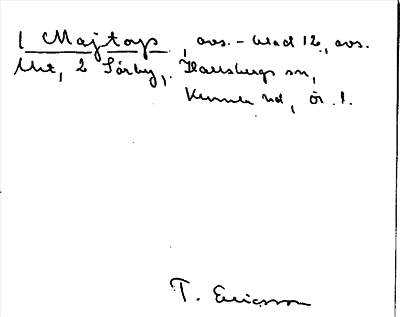 1 Majtorp, avs. - blad 12, avs.
Utr, 2 Sörby, Hallsbergs sn,
Kumla hd, Ör. l.
T. Ericsson